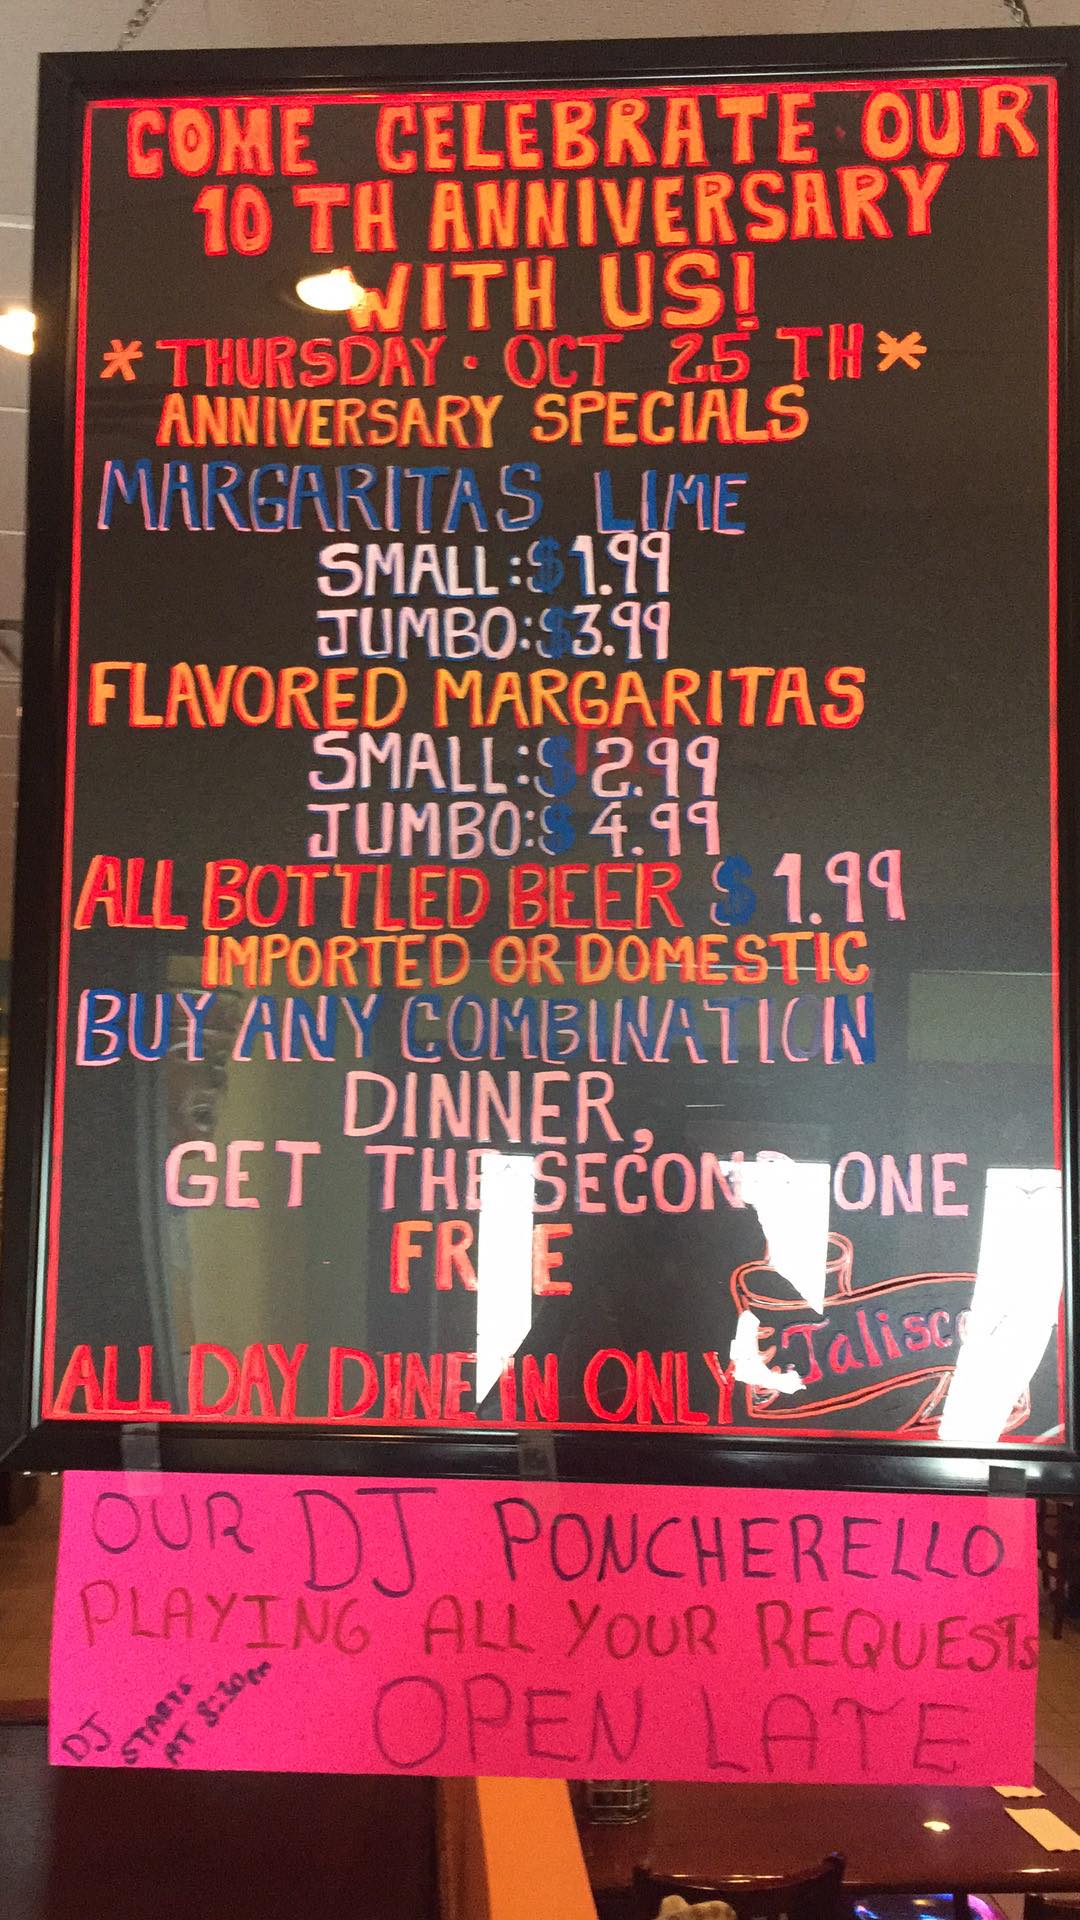 COME CELEBRATE OUR
10 TH ANNIVERSARY
WITH US!
* THURSDAY · OCT 25 TH *
ANNIVERSARY SPECIALS
MARGARITAS LIME
SMALL: $1.99
JUMBO: $3.99
FLAVORED MARGARITAS
SMALL: $2.99
JUMBO: $4.99
ALL BOTTLED BEER $1.99
IMPORTED OR DOMESTIC
BUY ANY COMBINATION
DINNER,
GET THE SECOND ONE
FREE
Jalisco
ALL DAY DINE IN ONLY
OUR DJ PONCHERELLO
PLAYING ALL YOUR REQUESTS
OPEN LATE
DJ STARTS
AT 8:30PM